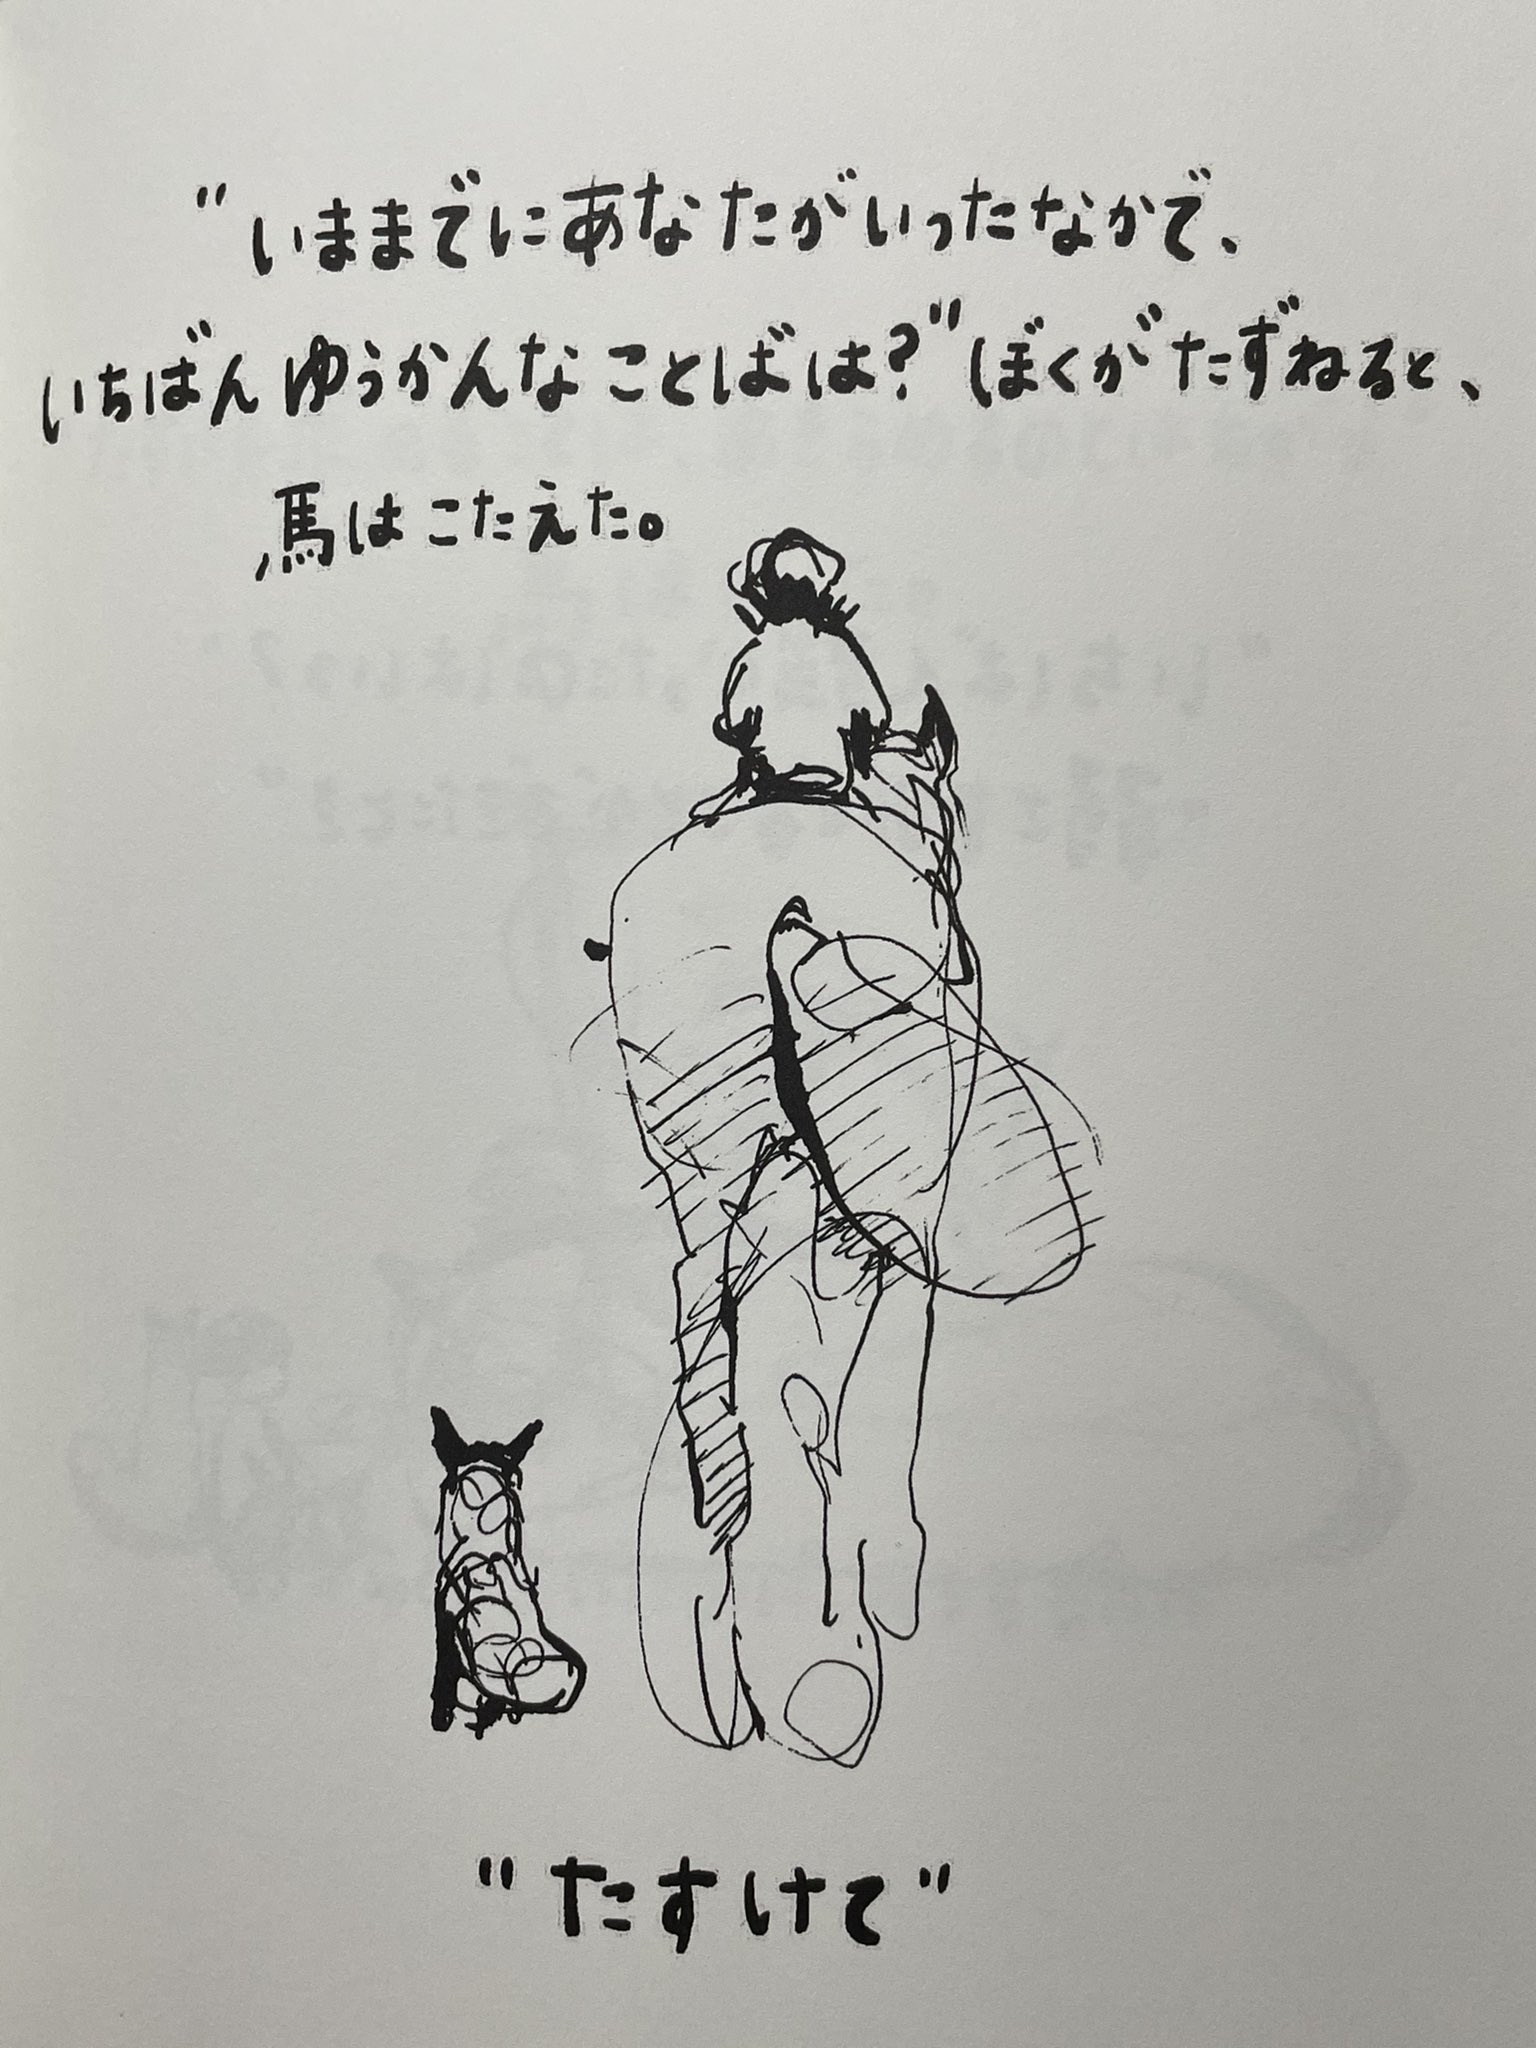 "いままでにあなたがいったなかで、
いちばんゆうかんなことばは?"ぼくがたずねると、
馬はこたえた。
"たすけて"